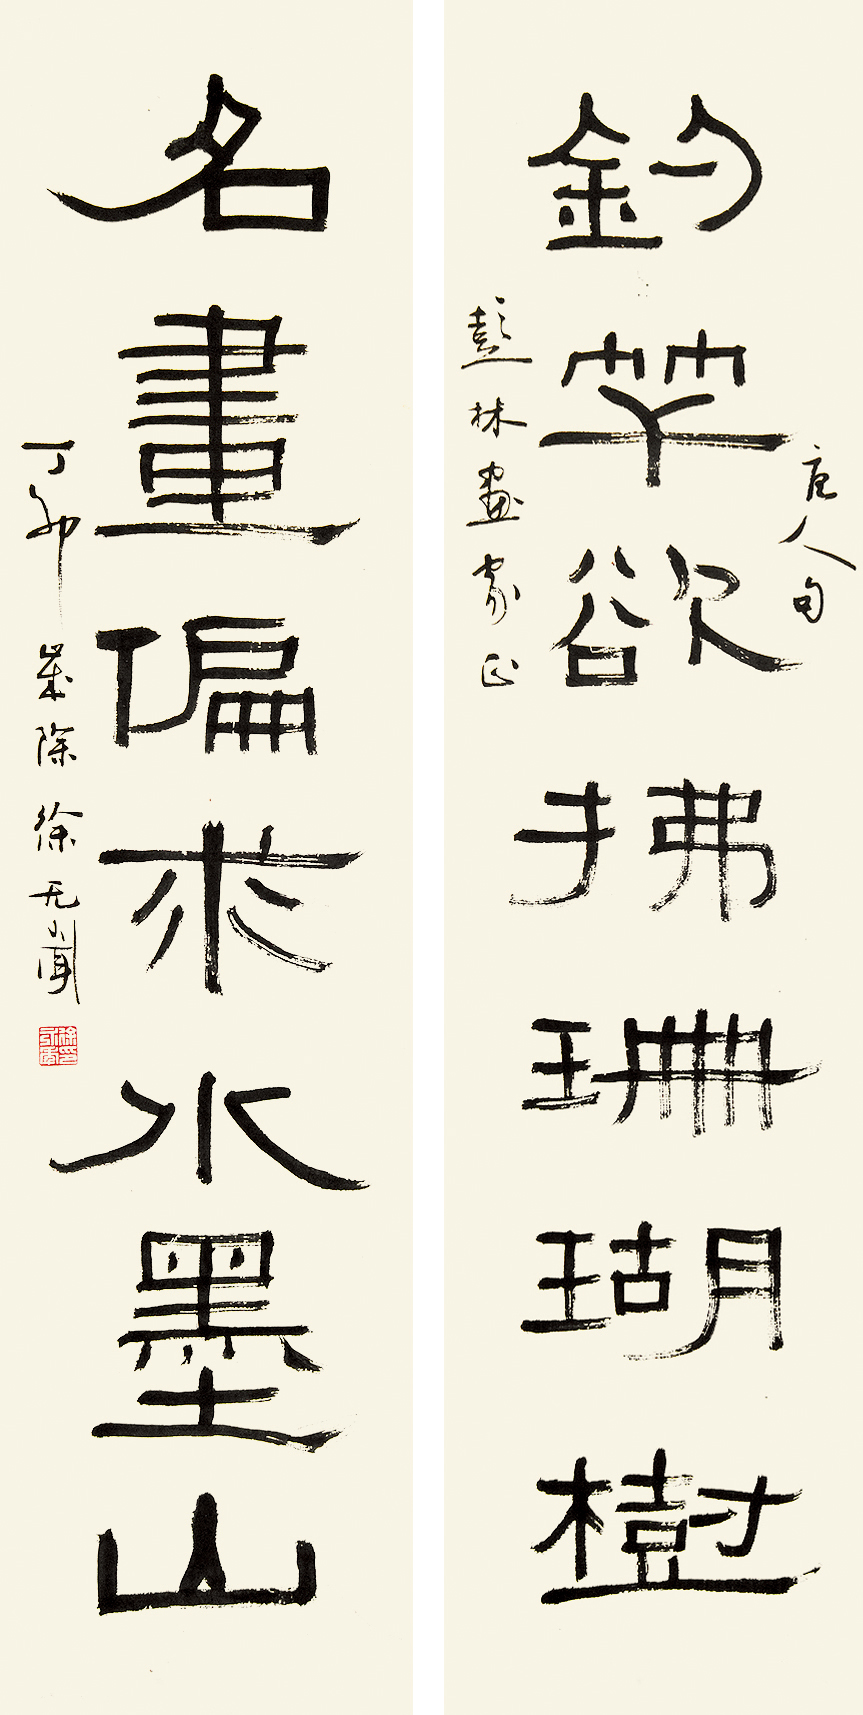 唐人句
釣竿欲拂珊瑚樹
彭林畫家正
名畫偏求水墨山
丁卯歲除徐无聞